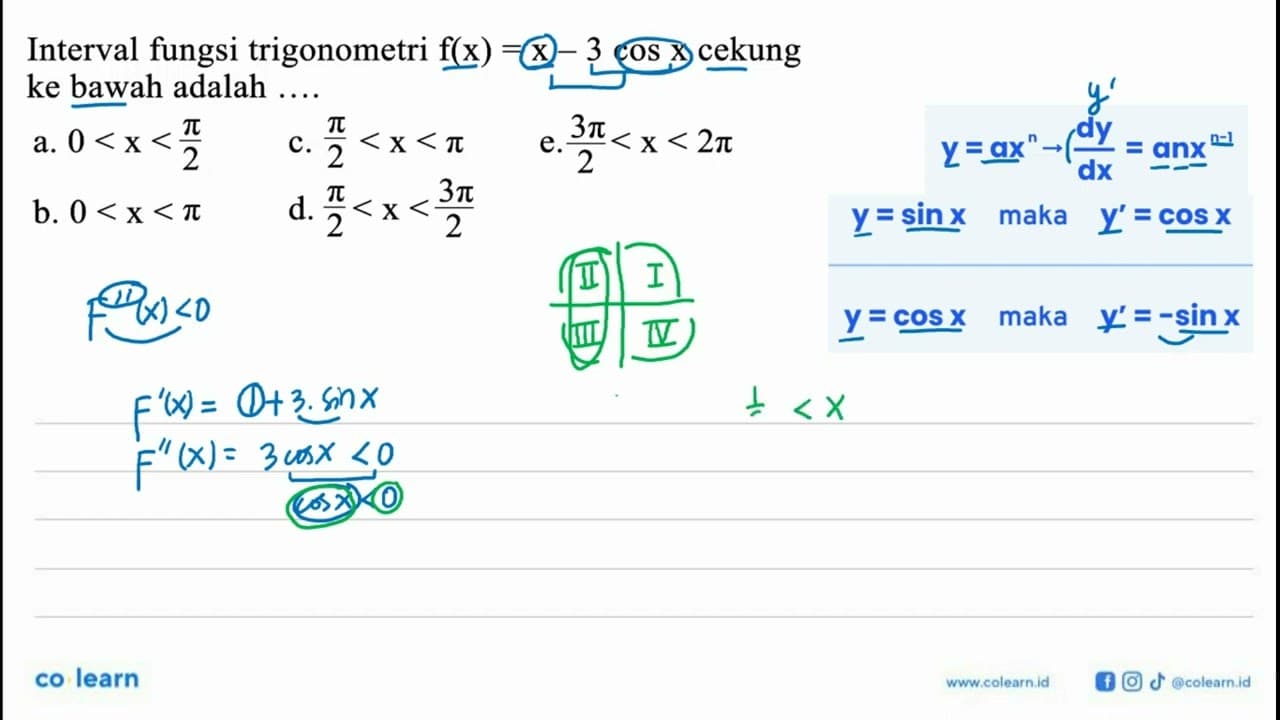 Interval fungsi trigonometri f(x) = x – 3 cos x cekung
ke bawah adalah ....
a. 0 < x < π/2
c. π/2 < x < π
e. 3π/2 < x < 2π
b. 0 < x < π
d. π/2 < x < 3π/2
y'
y = axⁿ → (dy/dx = anxⁿ⁻¹
y = sin x maka y' = cos x
y = cos x maka y' = -sin x
II I
III IV
F''(x) < 0
F'(x) = 1 + 3. sin x
< x
F''(x) = 3 cos x < 0
cos x < 0
co learn
www.colearn.id
@colearn.id